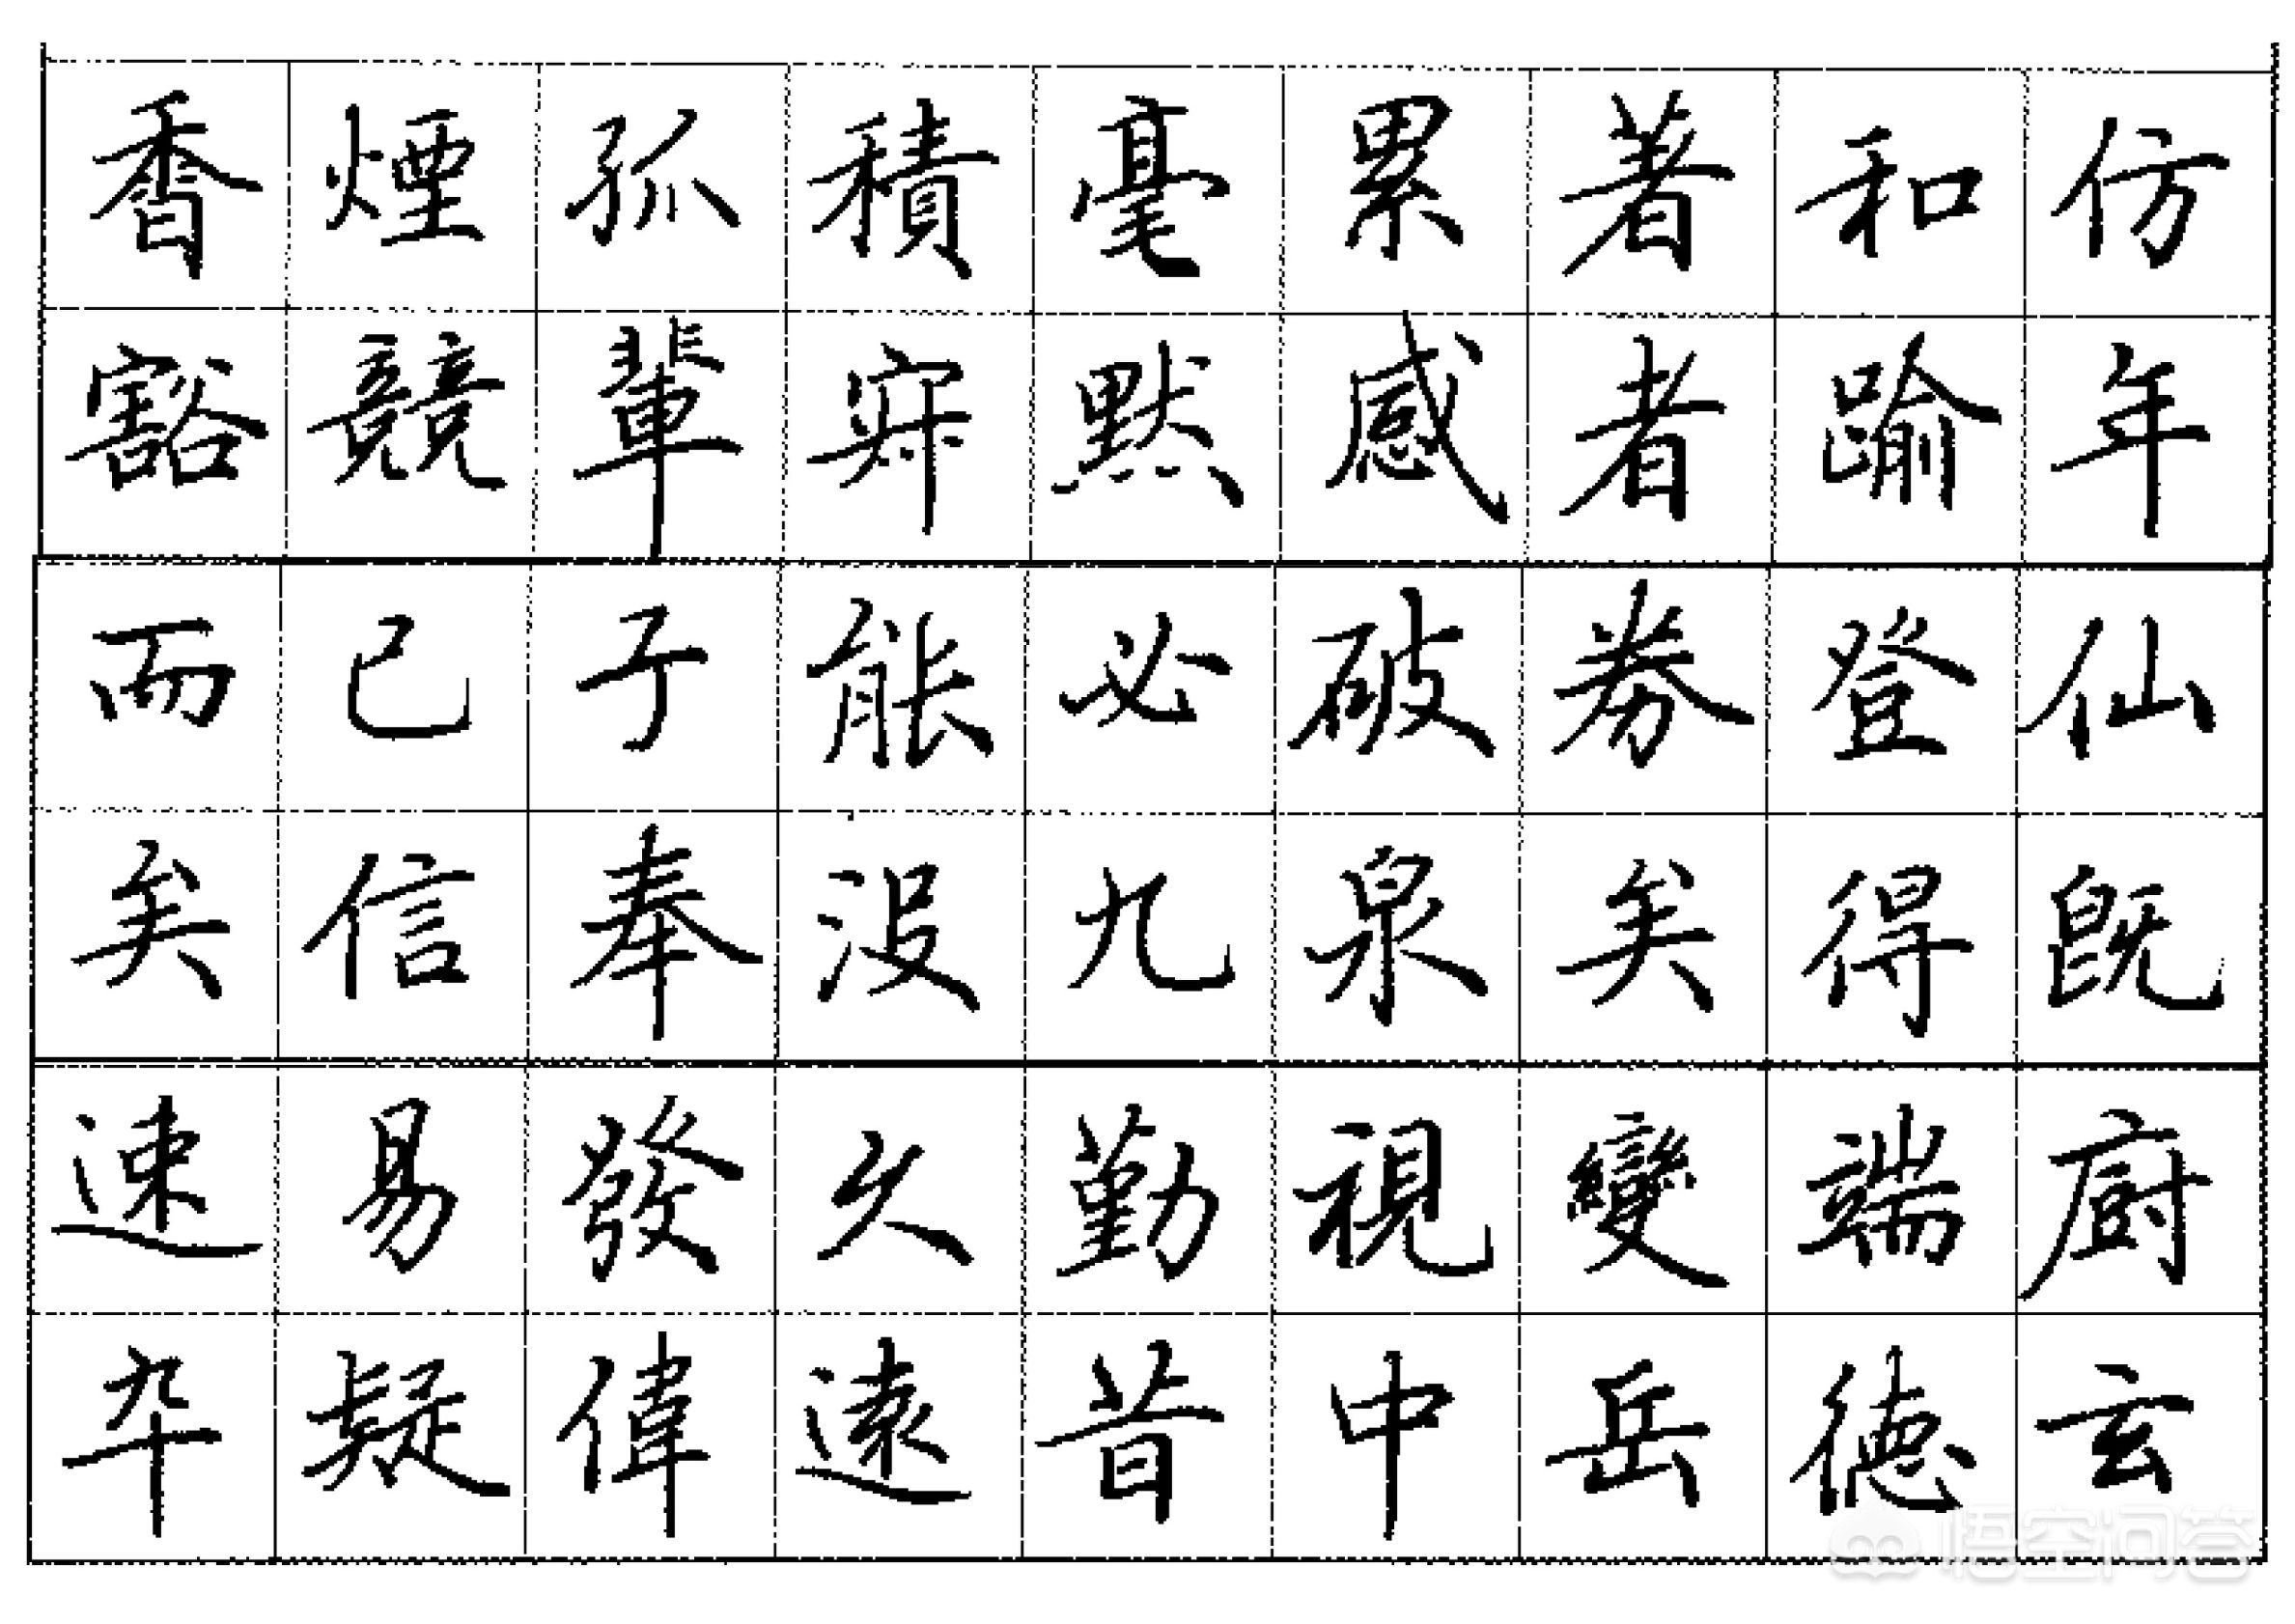 香煙孤積毫累著和仿
豁競輩寂默感者踰年
而已于能必破券登仙
矣信奉沒九泉矣得既
速易發久勤視變端廚
卒疑偉遠昔中岳德玄
悟空问答